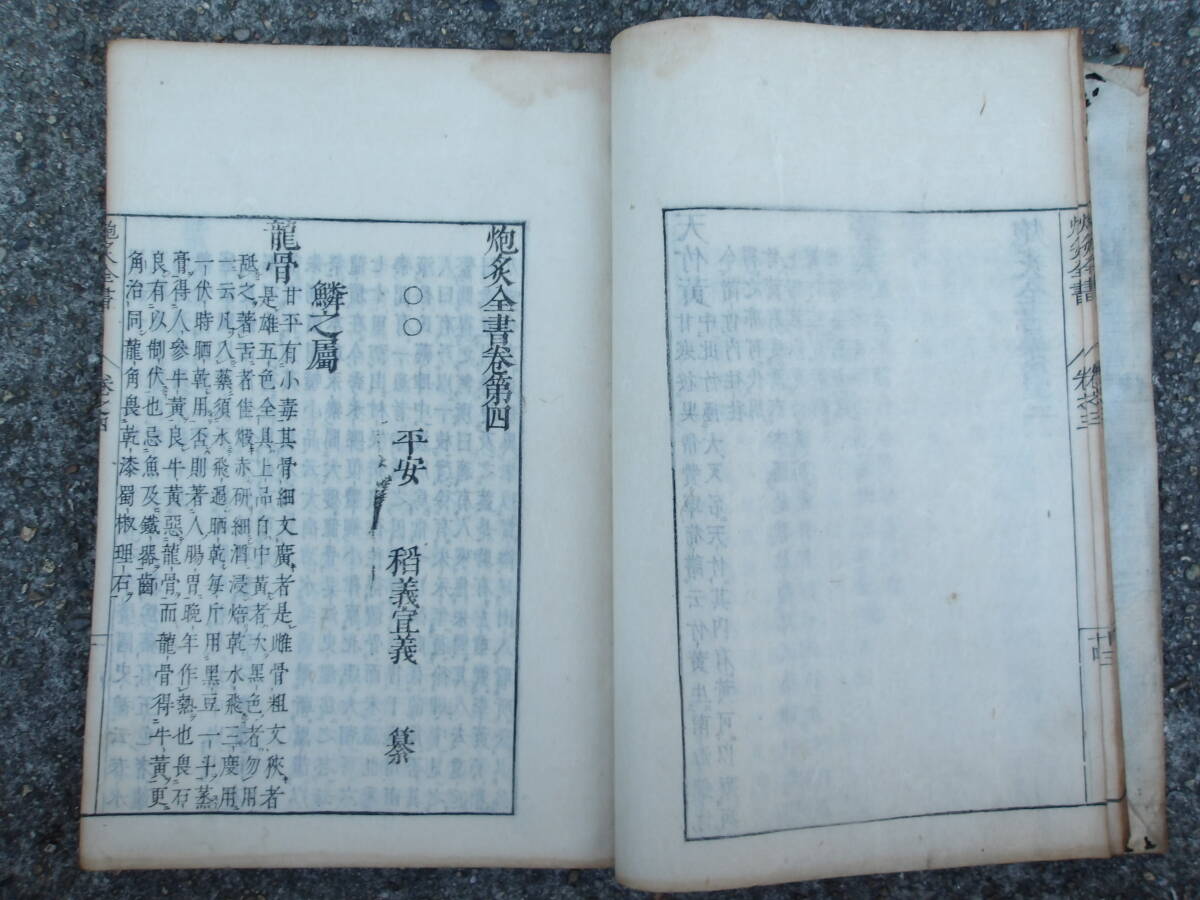 炮炙全書卷第四
〇〇 平安 稻義宣義 纂
鱗之屬
龍骨 甘平有小毒其骨細文廣者是雌骨粗文狹者
是雄五色全具上品白中黃者次黑色者勿用
舐之著舌者佳煅赤研細酒浸焙乾水飛三度用
一云凡入藥須水飛過晒乾每斤用黑豆一斗蒸
一伏時晒乾用否則著人腸胃晚年作熱也畏石
膏得人參牛黃良牛黃惡龍骨而龍骨得牛黃更
良有以制伏也忌魚及鐵器齒
角治同龍角畏乾漆蜀椒理石
炮炙全書
卷之四
一
炮炙全書
卷之三
十四